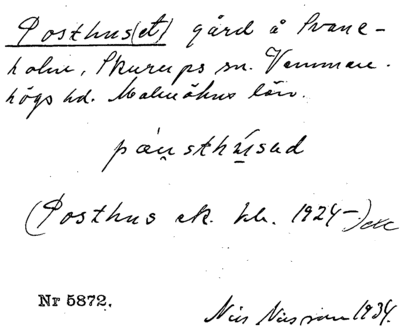 Posthus(et) gård å Svane-
holm, Skurups sn. Vemmen-
högs hd. Malmöhus län.
pæu̯sthu̯sad
(Posthus ek. kb. 1924-)
Nr 5872.
Nils Nilsson 1934.